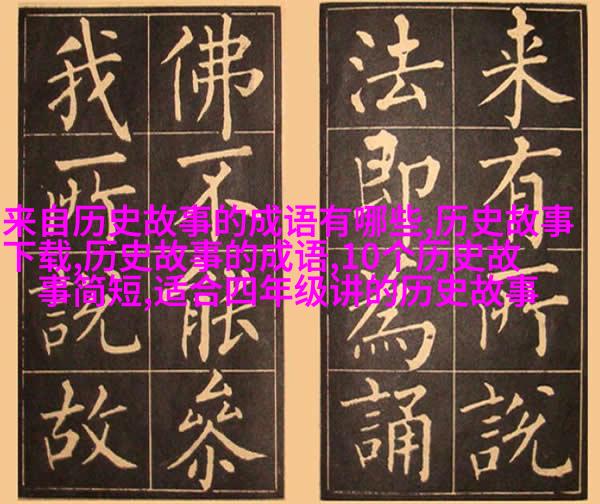 来有所說
法即為誦
佛不能參
我所說故
来自历史故事的成语有哪些,历史故事
下载,历史故事的成语,10个历史故
事简短,适合四年级讲的历史故事